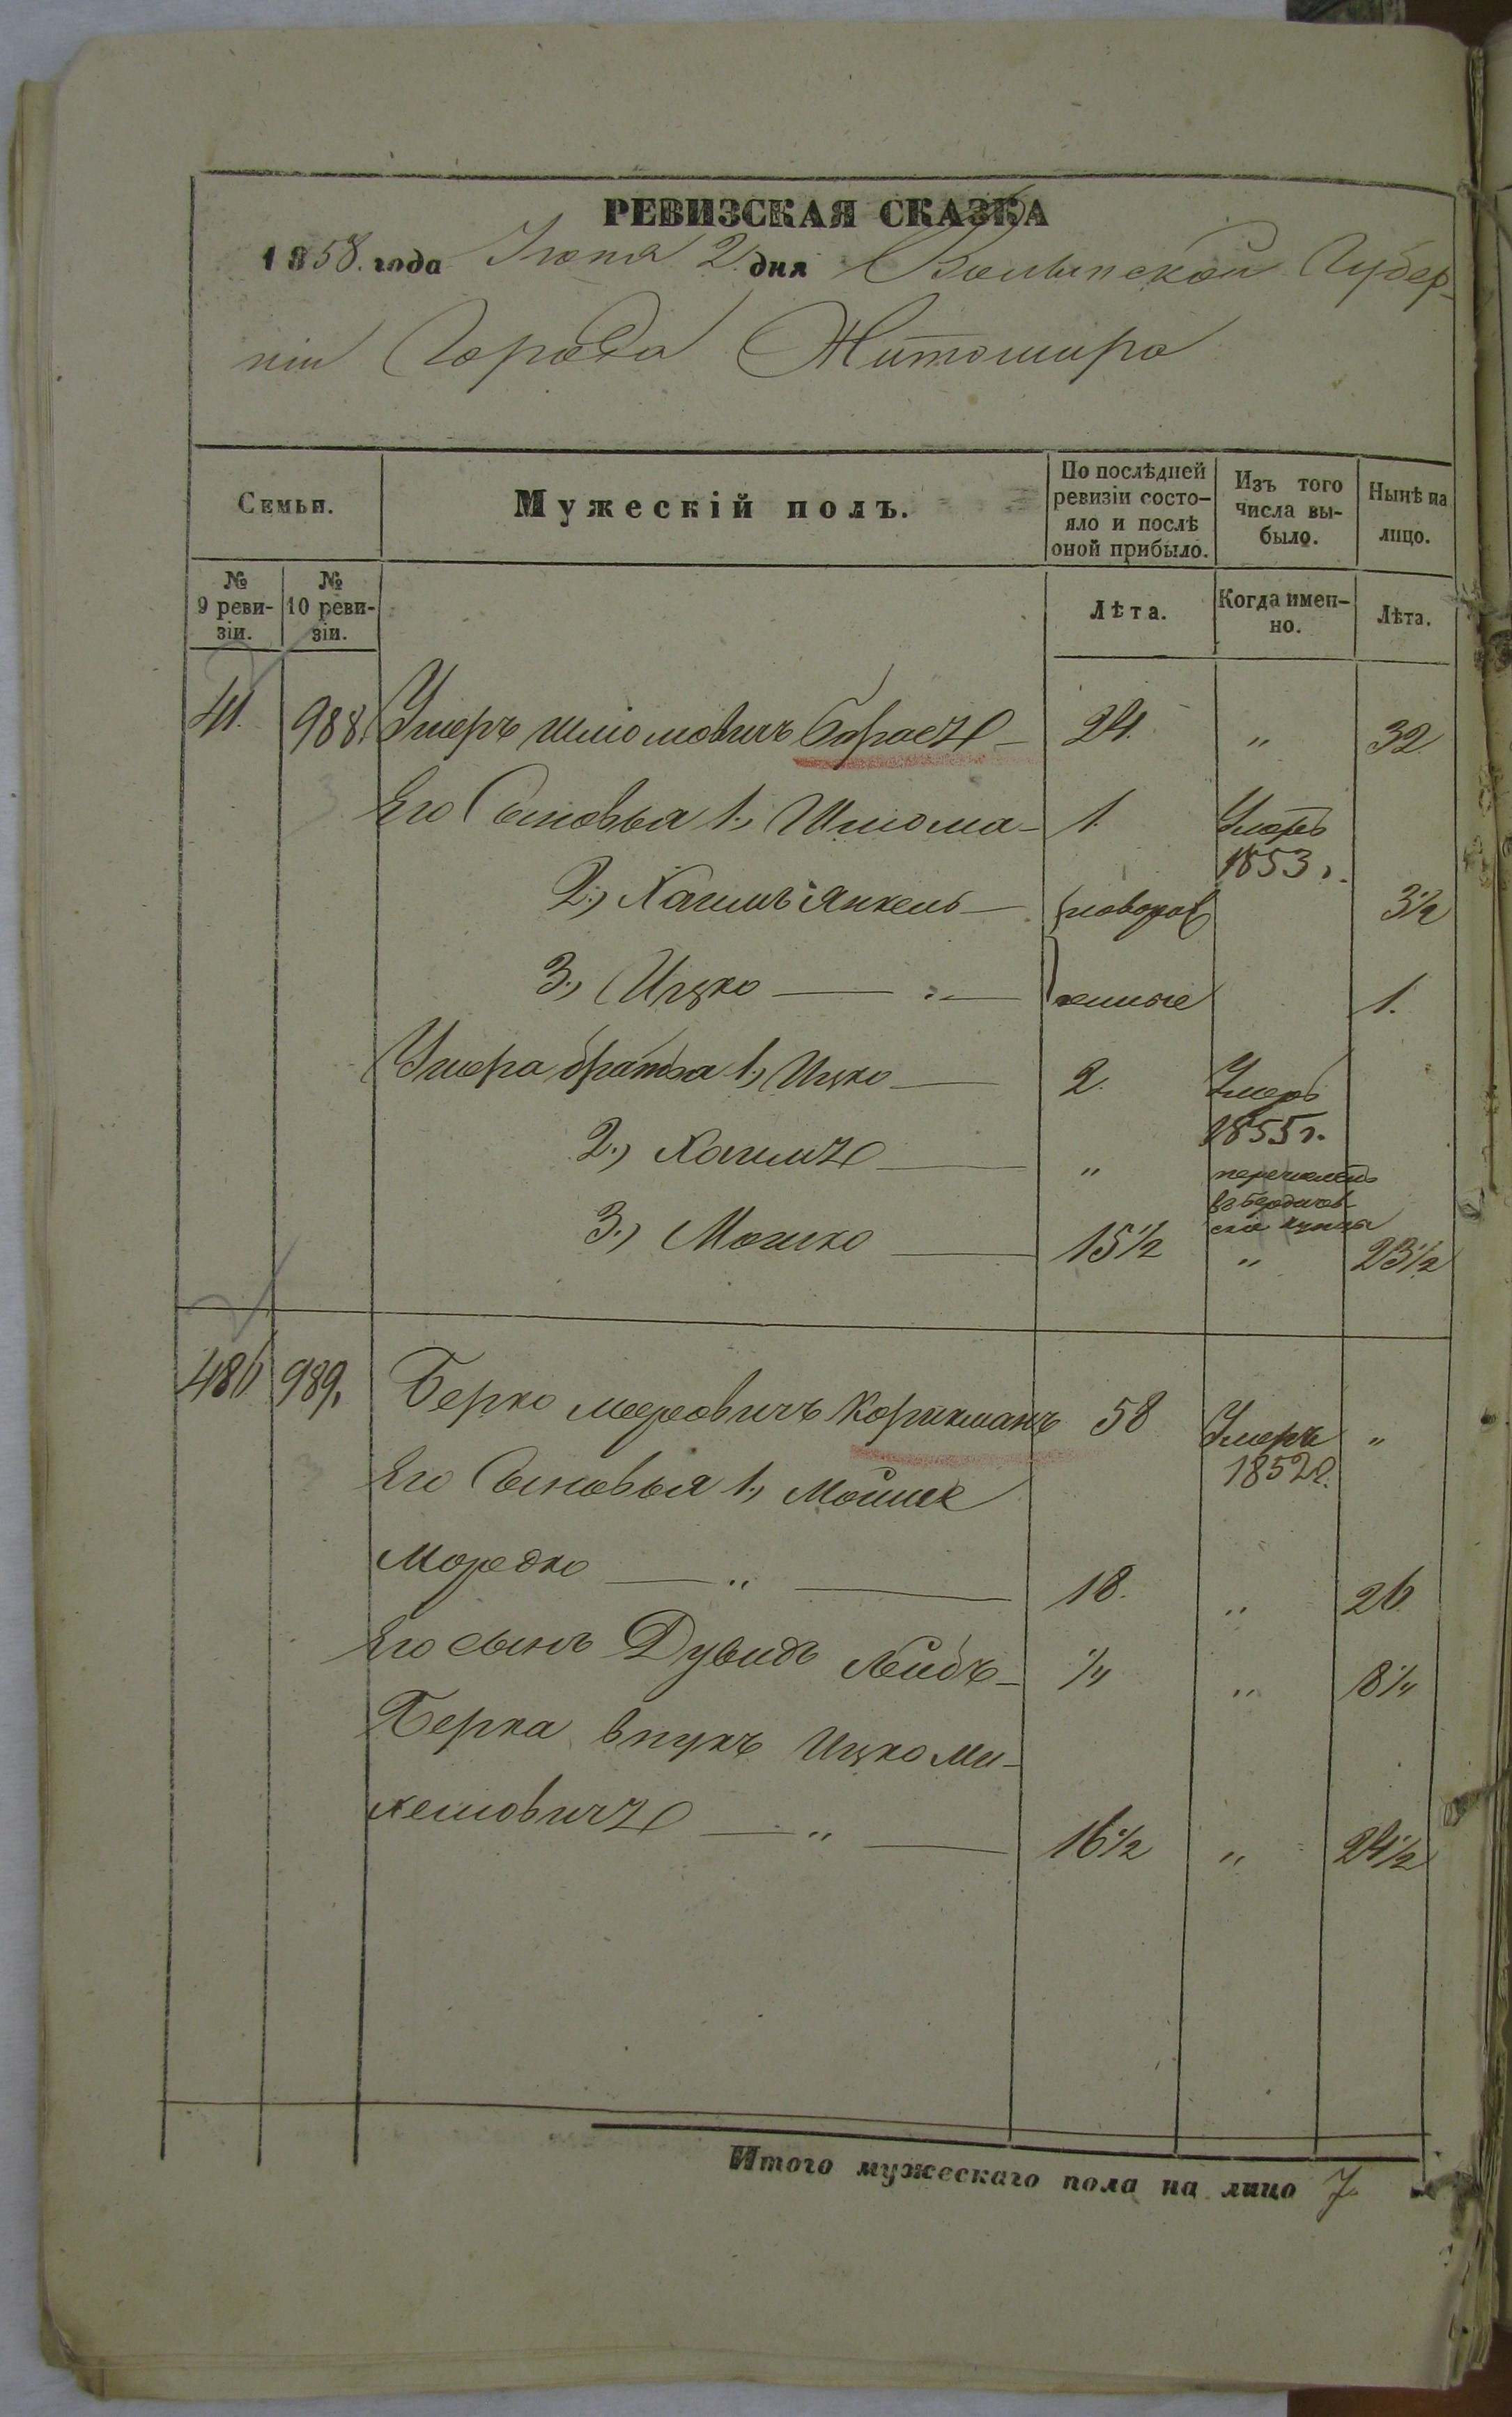 РЕВИЗСКАЯ СКАЗКА
1858. года Іюня 2 дня Волынской Губер-
ніи Города Житомира
Семьи.
Мужескій полъ.
По послѣдней ревизіи состо-
яло и послѣ оной прибыло.
Изъ того числа вы-
было.
Нынѣ на лицо.
№ 9 реви-
зіи.
№ 10 реви-
зіи.
Лѣта.
Когда имен-
но.
Лѣта.
411. 988. Умеръ Шліомовичъ Барасъ — 24. " 32
Его Сыновья 1., Шліома — 1. Умеръ
1853 г.
2., Хаимъ Янкель — новорож 3½
3., Ицко — " — денные 1.
Умера братья 1., Ицко — 2. Умеръ
1855 г.
2., Хаимъ — " перечисленъ
въ Бердичев-
скіе купцы
3., Мошко — 15½ " 23½
486 989. Берко Мееровичъ Корикманъ 58 Умеръ "
1852 г.
Его Сыновья 1., Мошек
Мордко — " — 18. " 26
Его сынъ Дувидъ Лейбъ — ¼ " 8¼
Берка внукъ Ицко Ми-
хелiовичъ — " — 16½ " 24½
Итого мужескаго пола на лицо 7